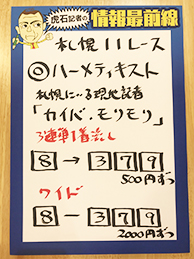 虎石記者の
情報最前線
札幌11レース
◎ハーメティキスト
札幌にいる現地記者
「カイバ・モリモリ」
3連単1着流し
8→3 7 9
500円ずつ
ワイド
8-3 7 9
2000円ずつ